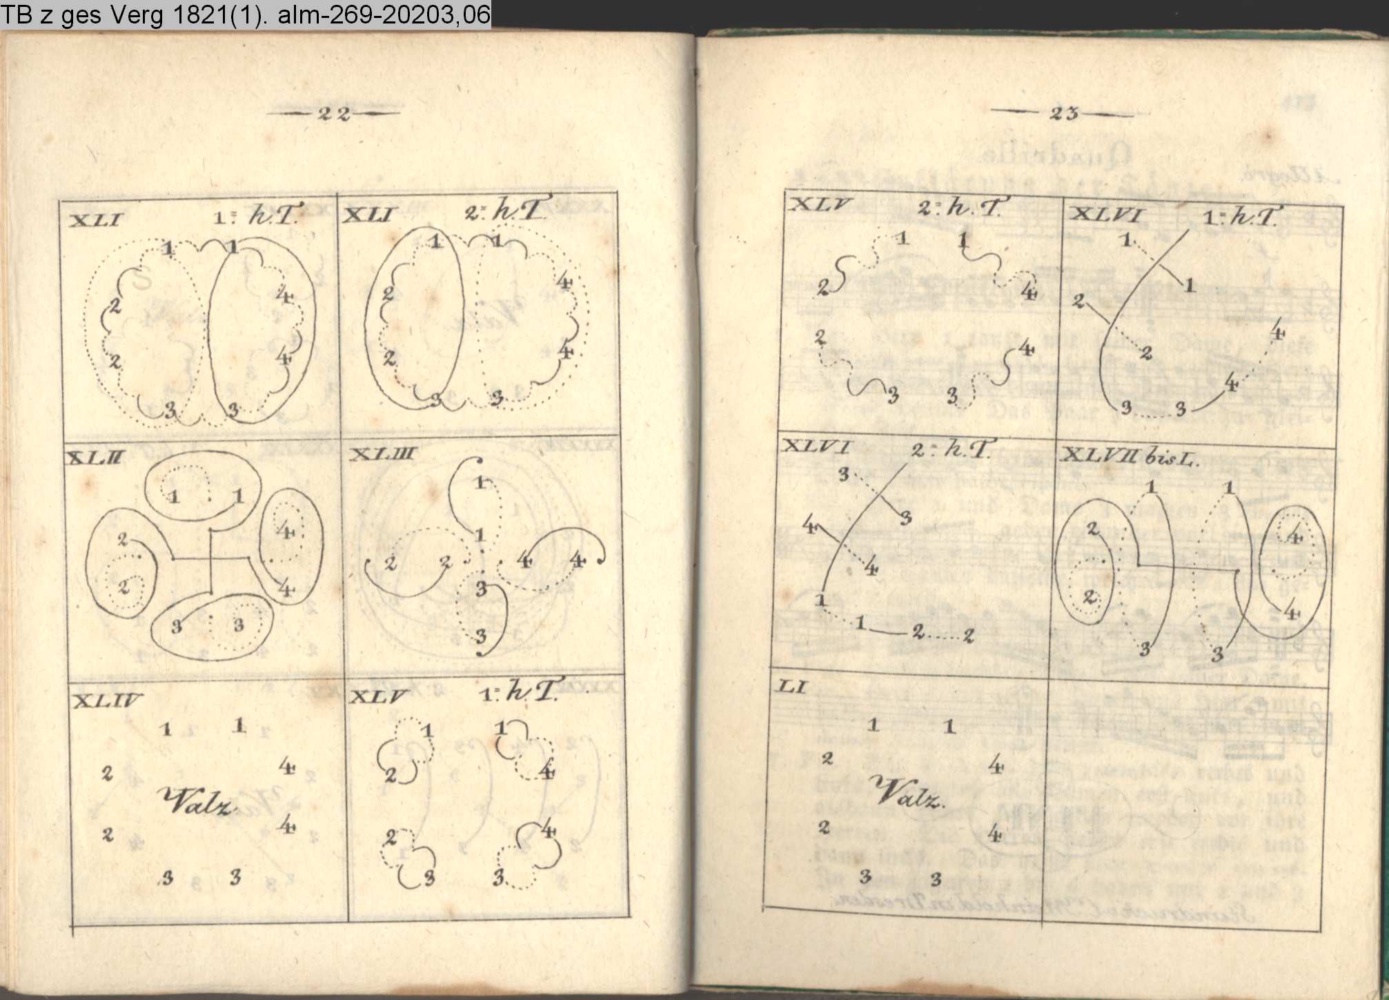 TB z ges Verg 1821(1). alm-269-20203,06
22
XLI 1: h.T.
1 1
2 4
2 4
3 3
XLI 2: h.T.
1 1
2 4
2 4
3 3
XLII
1 1
2 4
2 4
3 3
XLIII
1
1
2 2 4 4
3
3
XLIV
1 1
2 4
Valz.
2 4
3 3
XLV 1: h.T.
1 1
2 4
2 4
3 3
23
XLV 2: h.T.
1 1
2 4
2 4
3 3
XLVI 1: h.T.
1
1
2
4
2
4
3 3
XLVI 2: h.T.
3
3
4
4
1
1 2 2
XLVII bis L.
1 1
2 4
2 4
3 3
LI
1 1
2 4
Valz.
2 4
3 3